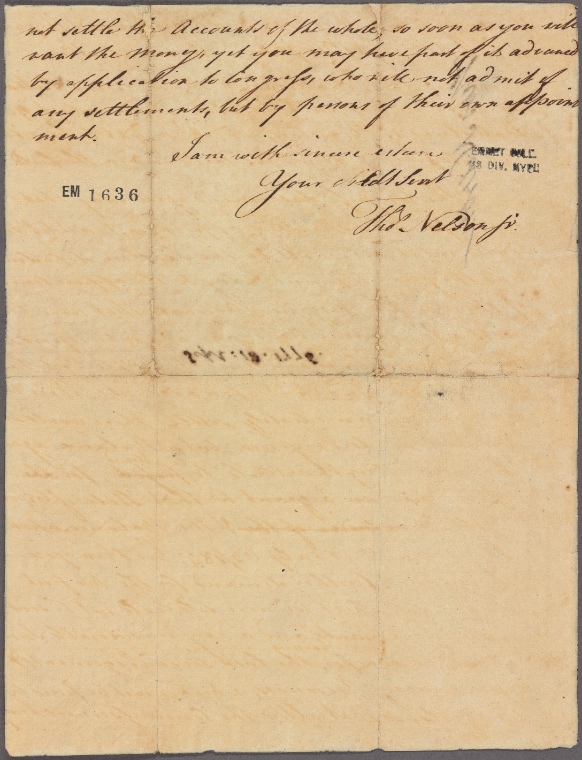 not settle the Accounts of the whole, so soon as you will
want the money, yet you may have part of it advanced
by application to Congress, who will not admit of
any settlements, but by persons of their own appoint
ment.
I am with sincere esteem
Your Obedt Servt
Thos. Nelson jr.
EMMET COLL.
MS DIV. NYPL
EM 1636